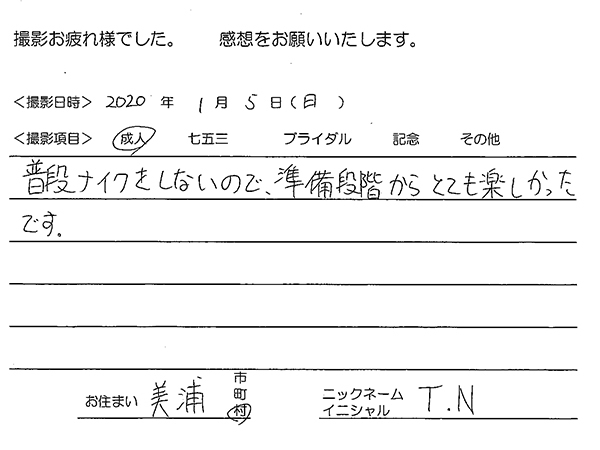 撮影お疲れ様でした。 感想をお願いいたします。
<撮影日時> 2020 年 1 月 5 日(日)
<撮影項目> 成人 七五三 ブライダル 記念 その他
普段ナイクをしないので、準備段階からとても楽しかった
です。
お住まい 美浦 市 町 村
ニックネーム イニシャル T.N